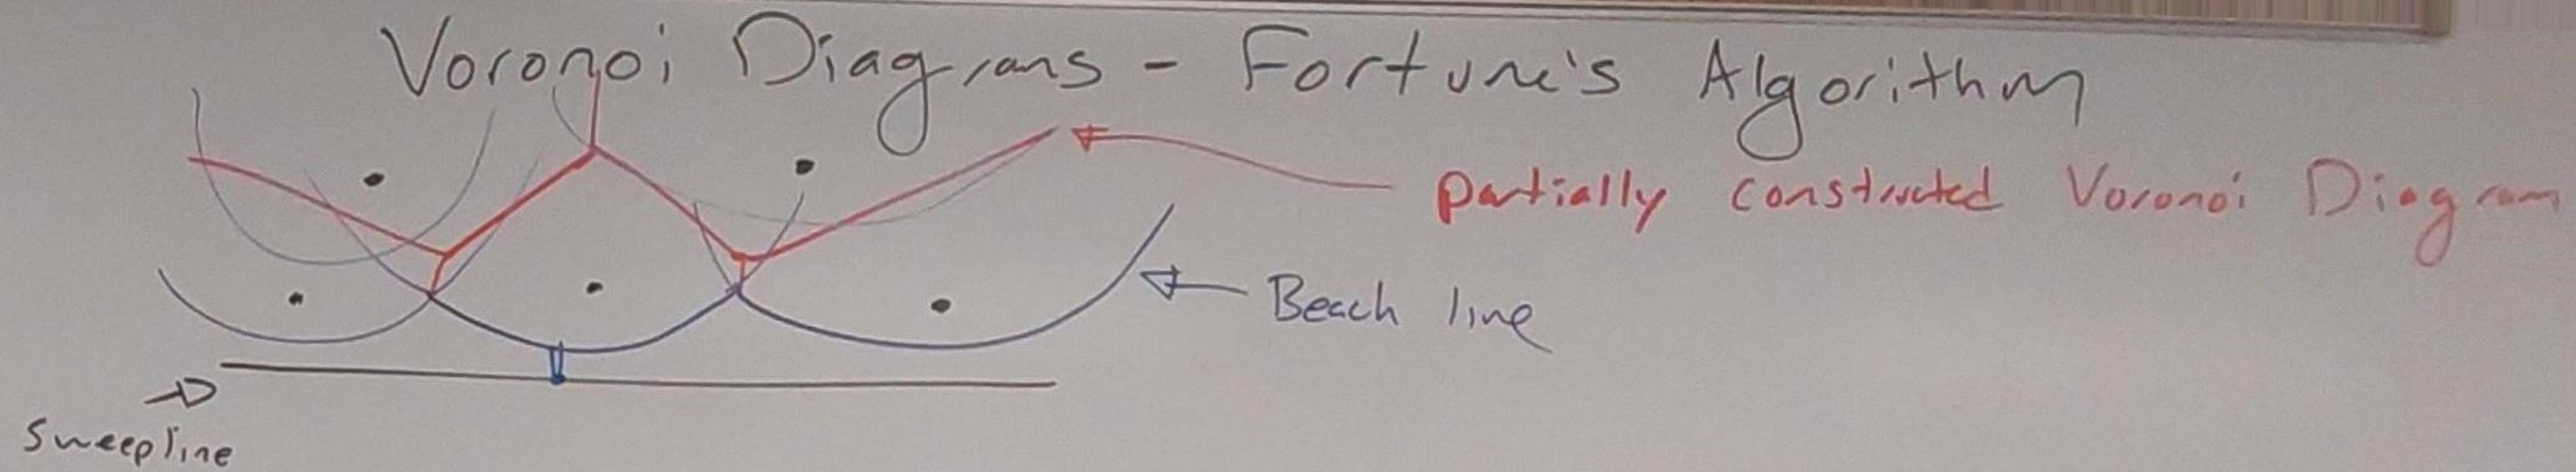 Voronoi Diagrams - Fortune's Algorithm
Partially constructed Voronoi Diagram
Beach line
Sweepline